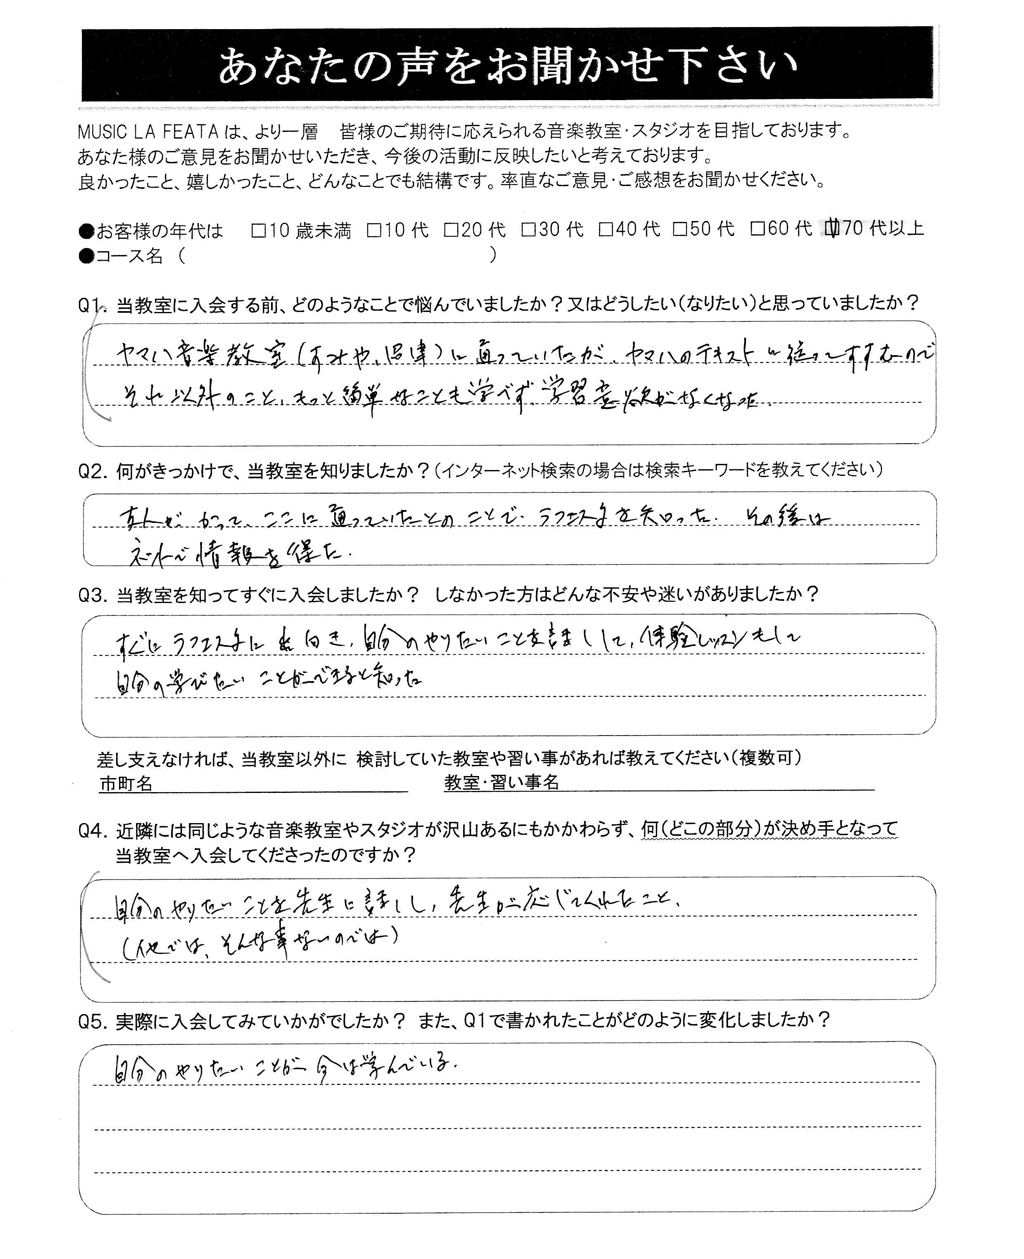 あなたの声をお聞かせ下さい
MUSIC LA FEATA は、より一層　皆様のご期待に応えられる音楽教室・スタジオを目指しております。
あなた様のご意見をお聞かせいただき、今後の活動に反映したいと考えております。
良かったこと、嬉しかったこと、どんなことでも結構です。率直なご意見・ご感想をお聞かせください。
●お客様の年代は　□10 歳未満 □10 代 □20 代 □30 代 □40 代 □50 代 □60 代 ☑70 代以上
●コース名（　　　　　　　　　　）
Q1. 当教室に入会する前、どのようなことで悩んでいましたか？又はどうしたい（なりたい）と思っていましたか？
ヤマハ音楽教室(すみや、沼津)に通っていたが、ヤマハのテキストに従ってすすむので
それ以外のこと、もっと簡単なことも学べず、学習意欲がなくなった。
Q2. 何がきっかけで、当教室を知りましたか？（インターネット検索の場合は検索キーワードを教えてください）
かつて、ここに通っていたとのことで、ラフェスタを知った。その後は
ネットで情報を得た。
Q3. 当教室を知ってすぐに入会しましたか？　しなかった方はどんな不安や迷いがありましたか？
すぐにラフェスタに出向き、自分のやりたいことを話しして、体験レッスンもして
自分の学びたいことができると知った
差し支えなければ、当教室以外に 検討していた教室や習い事があれば教えてください（複数可）
市町名　　　　　　　　教室・習い事名
Q4. 近隣には同じような音楽教室やスタジオが沢山あるにもかかわらず、何（どこの部分）が決め手となって
当教室へ入会してくださったのですか？
自分のやりたいことを先生に話しし、先生が応じてくれたこと、
(他では、そんな事ないのでは)
Q5. 実際に入会してみていかがでしたか？ また、Q1で書かれたことがどのように変化しましたか？
自分のやりたいことが今は学んでいる。